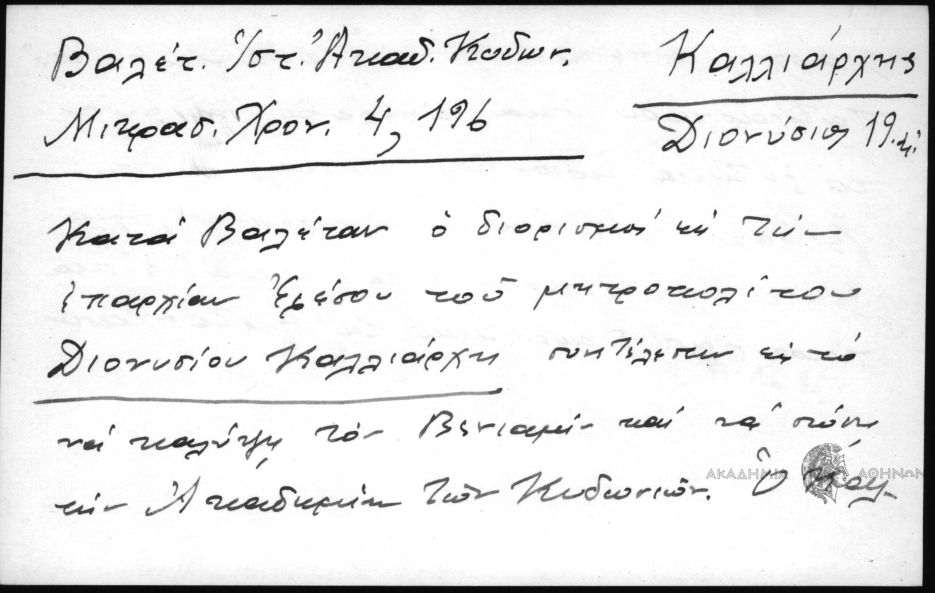 Βαλέτ. Ἱστ. Ἀκαδ. Κυδων.
Μικρασ. Χρον. 4, 196
Καλλιάρχης
Διονύσιος 19.
Κατά Βαλέταν ὁ διορισμός εἰς τήν
ἐπαρχίαν Ἐφέσου τοῦ μητροπολίτου
Διονυσίου Καλλιάρχη συνετέλεσεν εἰς τό
νά καλύψη τόν Βενιαμίν καί νά σώση
τήν Ἀκαδημίαν τῶν Κυδωνιῶν. Ὁ
ΑΚΑΔΗΜΙΑ ΑΘΗΝΩΝ